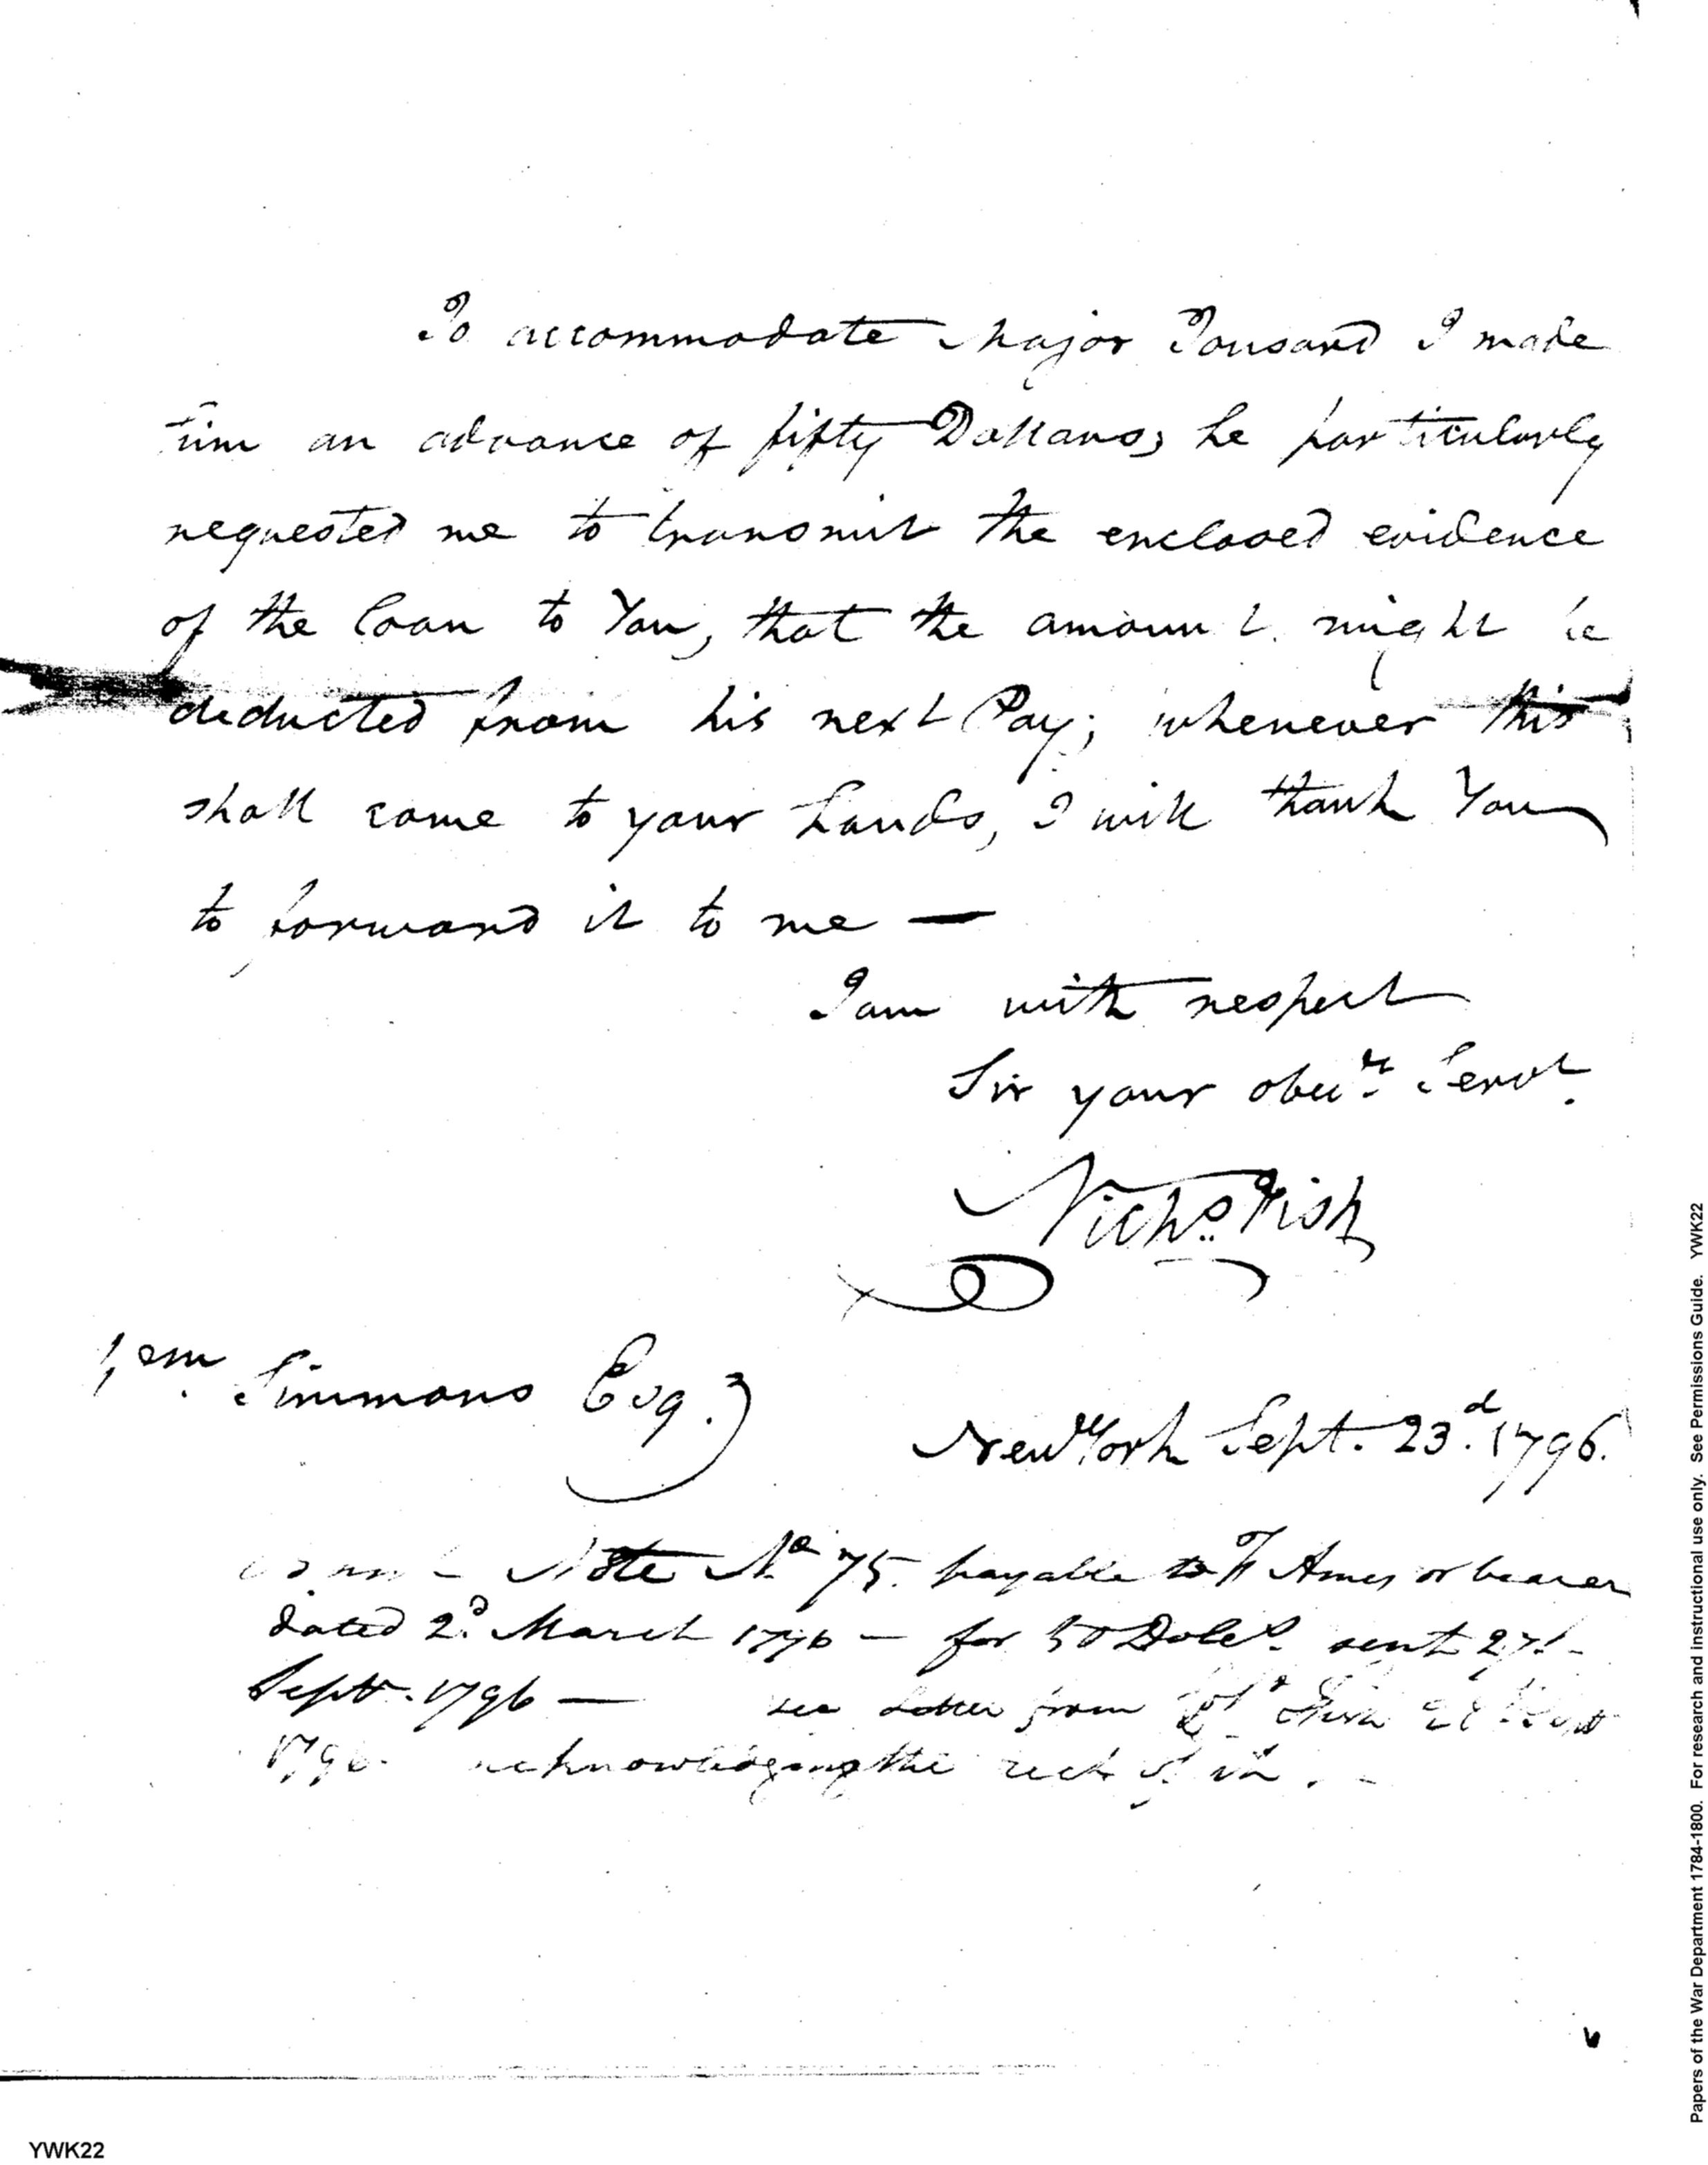 To accommodate Major Tousard I made
him an advance of fifty Dollars, he particularly
requested me to transmit the enclosed evidence
of the Loan to You, that the amount might be
deducted from his next Pay; whenever this
shall come to your hands, I will thank You
to forward it to me —
I am with respect
Sir your obedt. Servt.
Nichs. Fish
Wm. Simmons Esq.
New York Sept. 23.d 1796.
Note No 75. payable to F Ames or bearer
dated 2.d March 1796 — for 50 Doll.s sent 27.
Sept. 1796 — see Letter from Col. Fish 28 Sept
1796. acknowledging the rect of it. -
YWK22
Papers of the War Department 1784-1800. For research and instructional use only. See Permissions Guide. YWK22